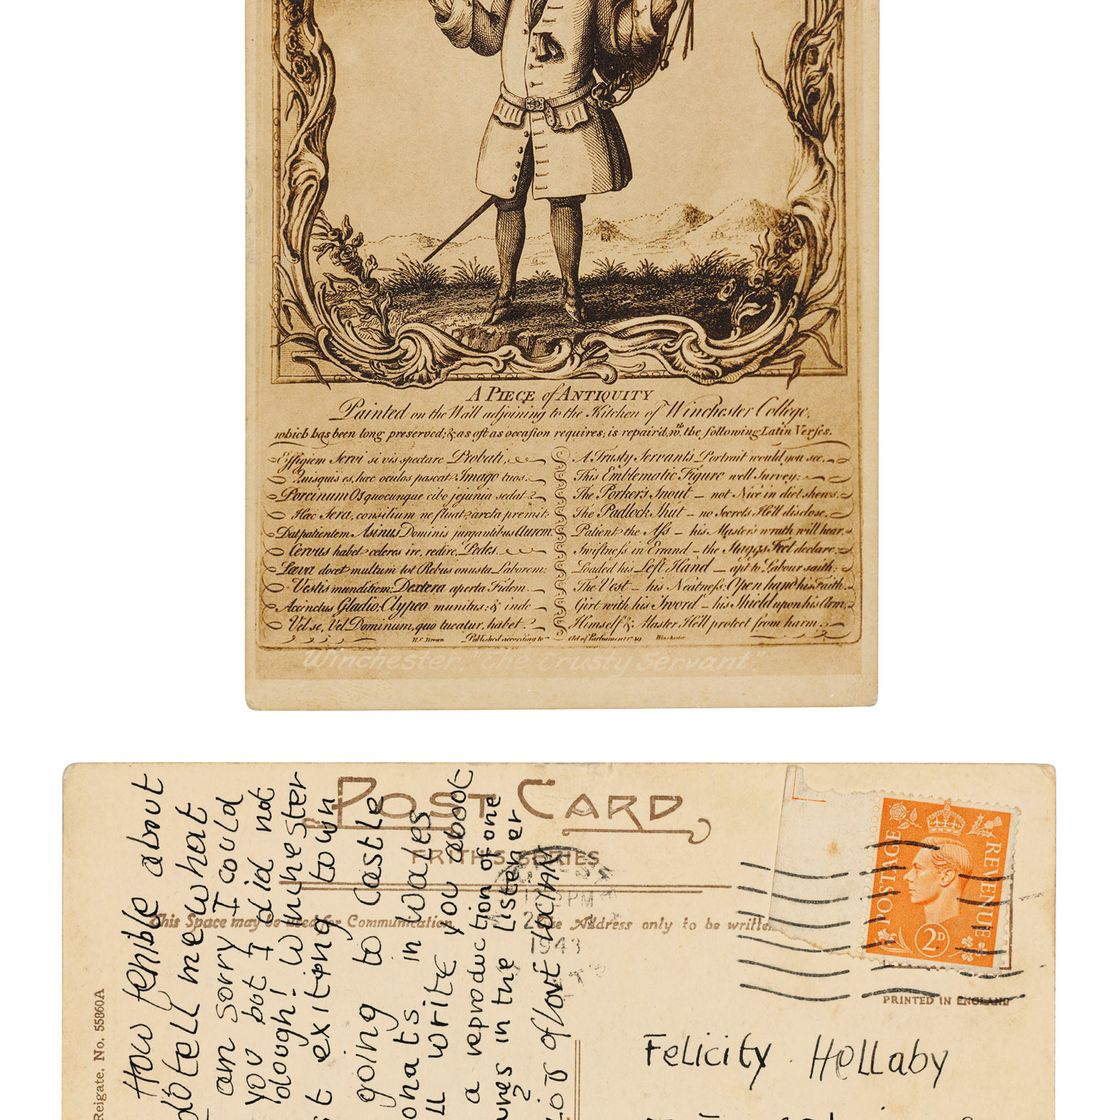 A PIECE of ANTIQUITY
Painted on the Wall adjoining to the Kitchen of Winchester College,
which has been long preserved; & as oft as occasion requires, is repair'd, wth. the following Latin Verses.
Effigiem Servi si vis spectare Probati,
Quisquis es, hæc oculos pascat Imago tuos.
Porcinum Os quocunque cibo jejunia sedat:
Hæc Sera, consilium ne fluat, arcta premit.
Dat patientem Asinus Dominis jurgantibus Aurem:
Cervus habet celeres ire, redire, Pedes.
Læva docet multum tot Rebus onusta Laborem:
Vestis munditiem: Dextera aperta Fidem.
Accinctus Gladio; Clypeo munitus: & inde
Vel se, Vel Dominum, quo tueatur, habet.
A Trusty Servant's Portrait would you see,
This Emblematic Figure well Survey:
The Porker's Snout – not Nice in diet shews,
The Padlock Shut – no Secrets He'll disclose,
Patient the Ass – his Master's wrath will hear,
Swiftness in Errand – the Staggs Feet declare,
Loaded his Left Hand – apt to Labour saith,
The Vest – his Neatness: Open hand his Faith,
Girt with his Sword – his Shield upon his Arm,
Himself & Master He'll protect from harm.
Published according to Act of Parliament Winchester
Winchester, "The Trusty Servant."
POST CARD
FRITH'S SERIES
This Space may be used for Communication
The Address only to be written
PM
1943
POSTAGE REVENUE
2D
PRINTED IN ENGLAND
Reigate. No. 55860A
How terrible about
tell me what
am sorry I could
you but I did not
dough! Winchester
exiting town
going to Castle
thats in Wales
write you about
a reproduction of one
in the Listener
of love LUCIAN
Felicity Hellaby